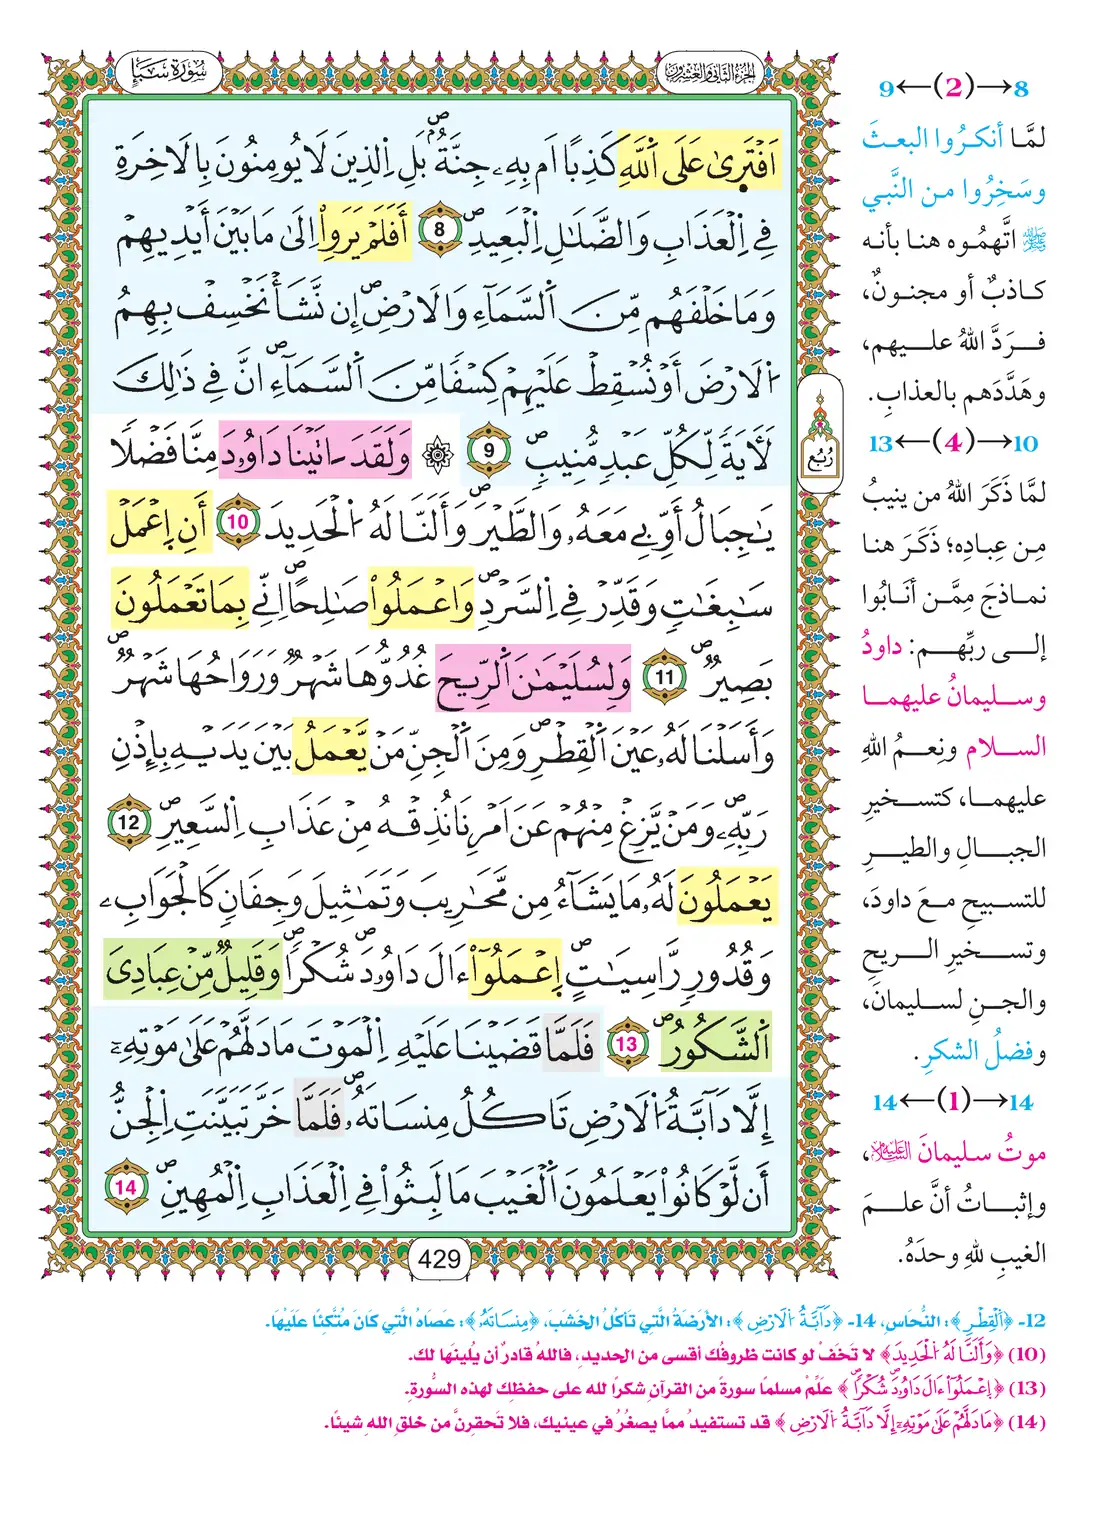 الجزء الثاني والعشرون
سُورَةُ سَبَإٍ
اَفْتَر۪ىٰ عَلَى اَ۬للَّهِ كَذِباً اَم بِهِۦ جِنَّةُۢۖ بَلِ اِ۬لذِينَ لَا يُومِنُونَ بِالَاخِرَةِ
فِے اِ۬لْعَذَابِ وَالضَّلَٰلِ اِ۬لْبَعِيدِۖ 8 أَفَلَمْ يَرَوِاْ اِلَىٰ مَا بَيْنَ أَيْدِيهِمْ
وَمَا خَلْفَهُم مِّنَ اَ۬لسَّمَآءِ وَالَارْضِۖ إِن نَّشَأْ نَخْسِفْ بِهِمُ
اُ۬لَارْضَ أَوْ نُسْقِطْ عَلَيْهِمْ كِسْفاً مِّنَ اَ۬لسَّمَآءِۖ اِنَّ فِے ذَٰلِكَ
لَأٓيَةً لِّكُلِّ عَبْدٍ مُّنِيبٍۖ 9 ۞ وَلَقَدَ اٰتَيْنَا دَاوُۥدَ مِنَّا فَضْلاً
يَٰجِبَالُ أَوِّبِے مَعَهُۥ وَالطَّيْرَۖ وَأَلَنَّا لَهُ اُ۬لْحَدِيدَ 10 أَنِ اِ۪عْمَلْ
سَٰبِغَٰتٍ وَقَدِّرْ فِے اِ۬لسَّرْدِۖ وَاعْمَلُواْ صَٰلِحاًۖ اِنِّے بِمَا تَعْمَلُونَ
بَصِيرٌۖ 11 وَلِسُلَيْمَٰنَ اَ۬لرِّيحَ غُدُوُّهَا شَهْرٌ وَرَوَاحُهَا شَهْرٌۖ
وَأَسَلْنَا لَهُۥ عَيْنَ اَ۬لْقِطْرِۖ وَمِنَ اَ۬لْجِنِّ مَنْ يَّعْمَلُ بَيْنَ يَدَيْهِ بِإِذْنِ
رَبِّهِۦۖ وَمَنْ يَّزِغْ مِنْهُمْ عَنَ اَمْرِنَا نُذِقْهُ مِنْ عَذَابِ اِ۬لسَّعِيرِۖ 12
يَعْمَلُونَ لَهُۥ مَا يَشَآءُ مِن مَّحَٰرِيبَ وَتَمَٰثِيلَ وَجِفَانٍ كَالْجَوَابِۦ
وَقُدُورٍ رَّاسِيَٰتٍۖ اِ۪عْمَلُوٓاْ ءَالَ دَاوُۥدَۖ شُكْراًۖ وَقَلِيلٌ مِّنْ عِبَادِيَ
اَ۬لشَّكُورُۖ 13 فَلَمَّا قَضَيْنَا عَلَيْهِ اِ۬لْمَوْتَ مَا دَلَّهُمْ عَلَىٰ مَوْتِهِۦٓ
إِلَّا دَآبَّةُ اُ۬لَارْضِ تَاكُلُ مِنسَاتَهُۥۖ فَلَمَّا خَرَّ تَبَيَّنَتِ اِ۬لْجِنُّ
أَن لَّوْ كَانُواْ يَعْلَمُونَ اَ۬لْغَيْبَ مَا لَبِثُواْ فِے اِ۬لْعَذَابِ اِ۬لْمُهِينِۖ 14
رُبُع
429
8→(2)←9
لمَّا أنكـرُوا البعـثَ
وسَخِرُوا مـن النَّبـي
ﷺ اتَّهمُـوه هنـا بأنـه
كـاذبٌ أو مجنـونٌ،
فـرَدَّ اللهُ علـيهم،
وهَدَّدَهم بالعذابِ.
10→(4)←13
لمَّا ذَكَرَ اللهُ من ينيبُ
مِـن عِبادِه؛ ذَكَـرَ هنـا
نمـاذجَ مِمَّـن أنَـابُوا
إلـى ربِّهـم: داودُ
وسـليمانُ عليهمـا
السـلام ونِعـمُ اللهِ
عليهمـا، كتسـخيرِ
الجبـالِ والطيـرِ
للتسبيحِ مـعَ داودَ،
وتسـخيرِ الـريحِ
والجـنِ لسـليمانَ،
وفضلُ الشكرِ.
14→(1)←14
موتُ سليمانَ عليه السلام،
وإثبـاتُ أنَّ علـمَ
الغيبِ للهِ وحدَهُ.
12- ﴿اَ۬لْقِطْرِ﴾: النُّحَاسِ، 14- ﴿دَآبَّةُ اُ۬لَارْضِ﴾: الأرَضَةُ الَّتِي تَأكُلُ الخَشَبَ، ﴿مِنسَاتَهُۥ﴾: عَصَاهُ الَّتِي كَانَ مُتَّكِئًا عَلَيْهَا.
(10) ﴿وَأَلَنَّا لَهُ اُ۬لْحَدِيدَ﴾ لا تَخَفْ لو كانت ظروفُك أقسى من الحديد، فاللهُ قادرٌ أن يُلينَها لك.
(13) ﴿اِ۪عْمَلُوٓاْ ءَالَ دَاوُۥدَۖ شُكْراًۖ﴾ علِّمْ مسلمًا سورةً من القرآنِ شكرًا لله على حفظِك لهذه السُّورة.
(14) ﴿مَا دَلَّهُمْ عَلَىٰ مَوْتِهِۦٓ إِلَّا دَآبَّةُ اُ۬لَارْضِ﴾ قد تستفيدُ ممَّا يصغُرُ في عينيك، فلا تَحقِرنَّ من خلقِ اللهِ شيئًا.